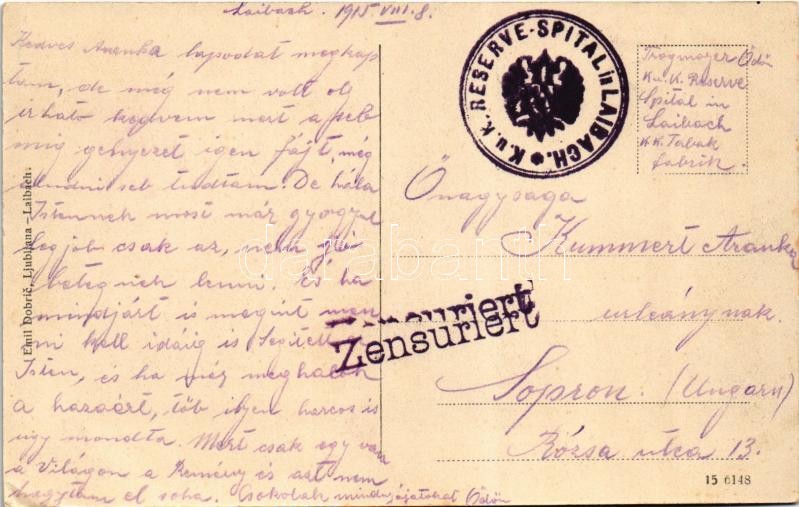 Laibach. 1915 VIII. 8.
Kedves Aranka lapodat megkap
tam, de még nem volt oly
irható kedvem mert a seb
mig genyezet igen fájt, még
aludni seb tudtam. De hála
Istennek most már gyogyul
legjob csak az, nem jó
betegnek lenni. És ha
mindjárt is megint men
ni kell idáig is segitett
Isten, és ha még meghalok
a hazaért, töb ilyen harcos is
ugy mondta. Mert csak egy van
a Világon a Remény és azt nem
hagytam el soha. Csokolak mindnyájatokat Ödön
Emil Dobrič, Ljubljana – Laibach.
K.u.K. RESERVE-SPITAL in LAIBACH.
Trogmayer Ödön
K.u.K. Reserve
Spital in
Laibach
KK. Tabak
fabrik.
Önagysaga
Kummert Aranka
urleánynak.
Sopron. (Ungarn)
Rózsa utca 13.
Zensuriert
Zensuriert
15 6148
darabanth